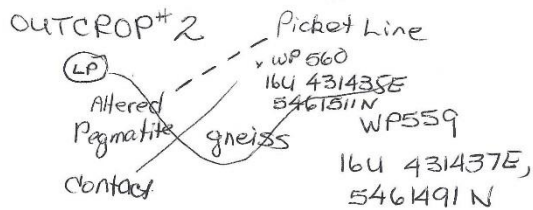 OUTCROP #2
Picket Line
LP
x WP 560
16U 431435E
5461511N
Altered
Pegmatite
gneiss
WP559
Contact
16U 431437E,
5461491 N